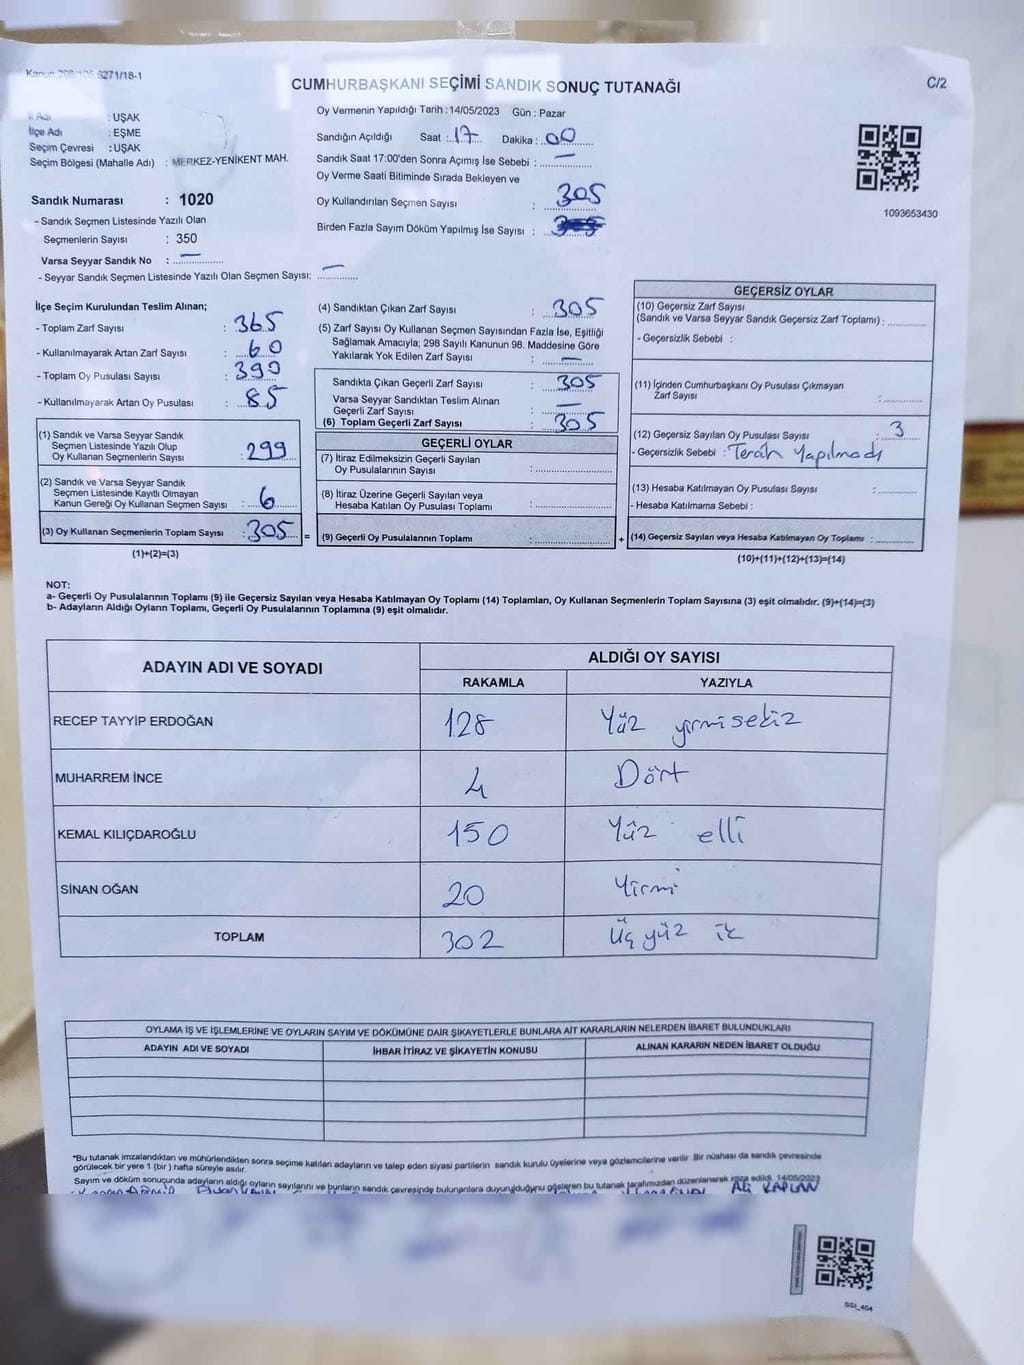 Kanun:298/105,6271/18-1
CUMHURBAŞKANI SEÇİMİ SANDIK SONUÇ TUTANAĞI
C/2
İl Adı : UŞAK
İlçe Adı : EŞME
Seçim Çevresi : UŞAK
Seçim Bölgesi (Mahalle Adı) : MERKEZ-YENİKENT MAH.
Oy Vermenin Yapıldığı Tarih : 14/05/2023 Gün : Pazar
Sandığın Açıldığı Saat : 17 Dakika : 00
Sandık Saat 17:00'den Sonra Açımış İse Sebebi : —
Oy Verme Saati Bitiminde Sırada Bekleyen ve
Oy Kullandırılan Seçmen Sayısı : 305
Birden Fazla Sayım Döküm Yapılmış İse Sayısı :
1093653430
Sandık Numarası : 1020
- Sandık Seçmen Listesinde Yazılı Olan
Seçmenlerin Sayısı : 350
Varsa Seyyar Sandık No : —
- Seyyar Sandık Seçmen Listesinde Yazılı Olan Seçmen Sayısı: —
İlçe Seçim Kurulundan Teslim Alınan;
- Toplam Zarf Sayısı : 365
- Kullanılmayarak Artan Zarf Sayısı : 60
- Toplam Oy Pusulası Sayısı : 390
- Kullanılmayarak Artan Oy Pusulası : 85
(1) Sandık ve Varsa Seyyar Sandık
Seçmen Listesinde Yazılı Olup
Oy Kullanan Seçmenlerin Sayısı : 299
(2) Sandık ve Varsa Seyyar Sandık
Seçmen Listesinde Kayıtlı Olmayan
Kanun Gereği Oy Kullanan Seçmen Sayısı : 6
(3) Oy Kullanan Seçmenlerin Toplam Sayısı : 305 =
(1)+(2)=(3)
(4) Sandıktan Çıkan Zarf Sayısı : 305
(5) Zarf Sayısı Oy Kullanan Seçmen Sayısından Fazla İse, Eşitliği
Sağlamak Amacıyla; 298 Sayılı Kanunun 98. Maddesine Göre
Yakılarak Yok Edilen Zarf Sayısı : —
Sandıkta Çıkan Geçerli Zarf Sayısı : 305
Varsa Seyyar Sandıktan Teslim Alınan
Geçerli Zarf Sayısı : —
(6) Toplam Geçerli Zarf Sayısı : 305
GEÇERLİ OYLAR
(7) İtiraz Edilmeksizin Geçerli Sayılan
Oy Pusulalarının Sayısı :
(8) İtiraz Üzerine Geçerli Sayılan veya
Hesaba Katılan Oy Pusulası Toplamı :
(9) Geçerli Oy Pusulalarının Toplamı : +
GEÇERSİZ OYLAR
(10) Geçersiz Zarf Sayısı
(Sandık ve Varsa Seyyar Sandık Geçersiz Zarf Toplamı) :
- Geçersizlik Sebebi :
(11) İçinden Cumhurbaşkanı Oy Pusulası Çıkmayan
Zarf Sayısı :
(12) Geçersiz Sayılan Oy Pusulası Sayısı : 3
- Geçersizlik Sebebi : Tercih Yapılmadı
(13) Hesaba Katılmayan Oy Pusulası Sayısı :
- Hesaba Katılmama Sebebi :
(14) Geçersiz Sayılan veya Hesaba Katılmayan Oy Toplamı :
(10)+(11)+(12)+(13)=(14)
NOT:
a- Geçerli Oy Pusulalarının Toplamı (9) ile Geçersiz Sayılan veya Hesaba Katılmayan Oy Toplamı (14) Toplamları, Oy Kullanan Seçmenlerin Toplam Sayısına (3) eşit olmalıdır. (9)+(14)=(3)
b- Adayların Aldığı Oyların Toplamı, Geçerli Oy Pusulalarının Toplamına (9) eşit olmalıdır.
ADAYIN ADI VE SOYADI
ALDIĞI OY SAYISI
RAKAMLA YAZIYLA
RECEP TAYYİP ERDOĞAN 128 Yüz yirmi sekiz
MUHARREM İNCE 4 Dört
KEMAL KILIÇDAROĞLU 150 Yüz elli
SİNAN OĞAN 20 Yirmi
TOPLAM 302 Üç yüz ik
OYLAMA İŞ VE İŞLEMLERİNE VE OYLARIN SAYIM VE DÖKÜMÜNE DAİR ŞİKAYETLERLE BUNLARA AİT KARARLARIN NELERDEN İBARET BULUNDUKLARI
ADAYIN ADI VE SOYADI İHBAR İTİRAZ VE ŞİKAYETİN KONUSU ALINAN KARARIN NEDEN İBARET OLDUĞU
*Bu tutanak imzalandıktan ve mühürlendikten sonra seçime katılan adayların ve talep eden siyasi partilerin sandık kurulu üyelerine veya gözlemcilerine verilir. Bir nüshası da sandık çevresinde
görülecek bir yere 1 (bir) hafta süreyle asılır.
Sayım ve döküm sonucunda adayların aldığı oyların sayılarını ve bunların sandık çevresinde bulunanlara duyurulduğunu gösteren bu tutanak tarafımızdan düzenlenerek imza edildi. 14/05/2023
ALİ KAPLAN
SSI_404